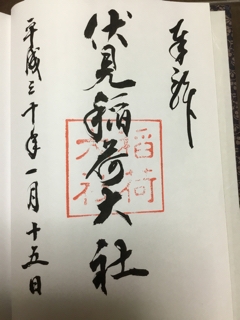 奉拝
伏見稲荷大社
平成三十年一月十五日
稲荷
大社